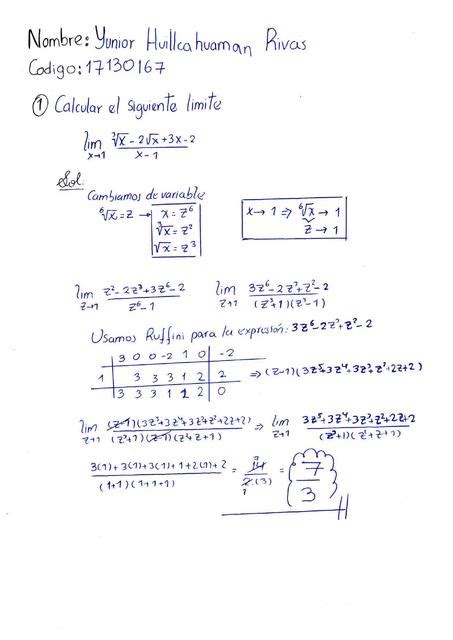 Nombre: Yunior Huillcahuaman Rivas
Codigo: 17130167
① Calcular el siguiente limite
lim x→1 (∛x - 2√x + 3x - 2)/(x - 1)
Sol:
Cambiamos de variable
⁶√x = z → x = z⁶
∛x = z²
√x = z³
x → 1 ⇒ ⁶√x → 1
z → 1
lim z→1 (z² - 2z³ + 3z⁶ - 2)/(z⁶ - 1) lim z→1 (3z⁶ - 2z³ + z² - 2)/((z³+1)(z³-1))
Usamos Ruffini para la expresión: 3z⁶ - 2z³ + z² - 2
3 0 0 -2 1 0 -2
1 3 3 3 1 2 2 ⇒ (z-1)(3z⁵+3z⁴+3z³+z²+2z+2)
3 3 3 1 2 2 0
lim z→1 ((z-1)(3z⁵+3z⁴+3z³+z²+2z+2))/((z³+1)(z-1)(z²+z+1)) ⇒ lim z→1 (3z⁵+3z⁴+3z³+z²+2z+2)/((z³+1)(z²+z+1))
(3(1)+3(1)+3(1)+1+2(1)+2)/((1+1)(1+1+1)) = 14/2(3) = 7/3